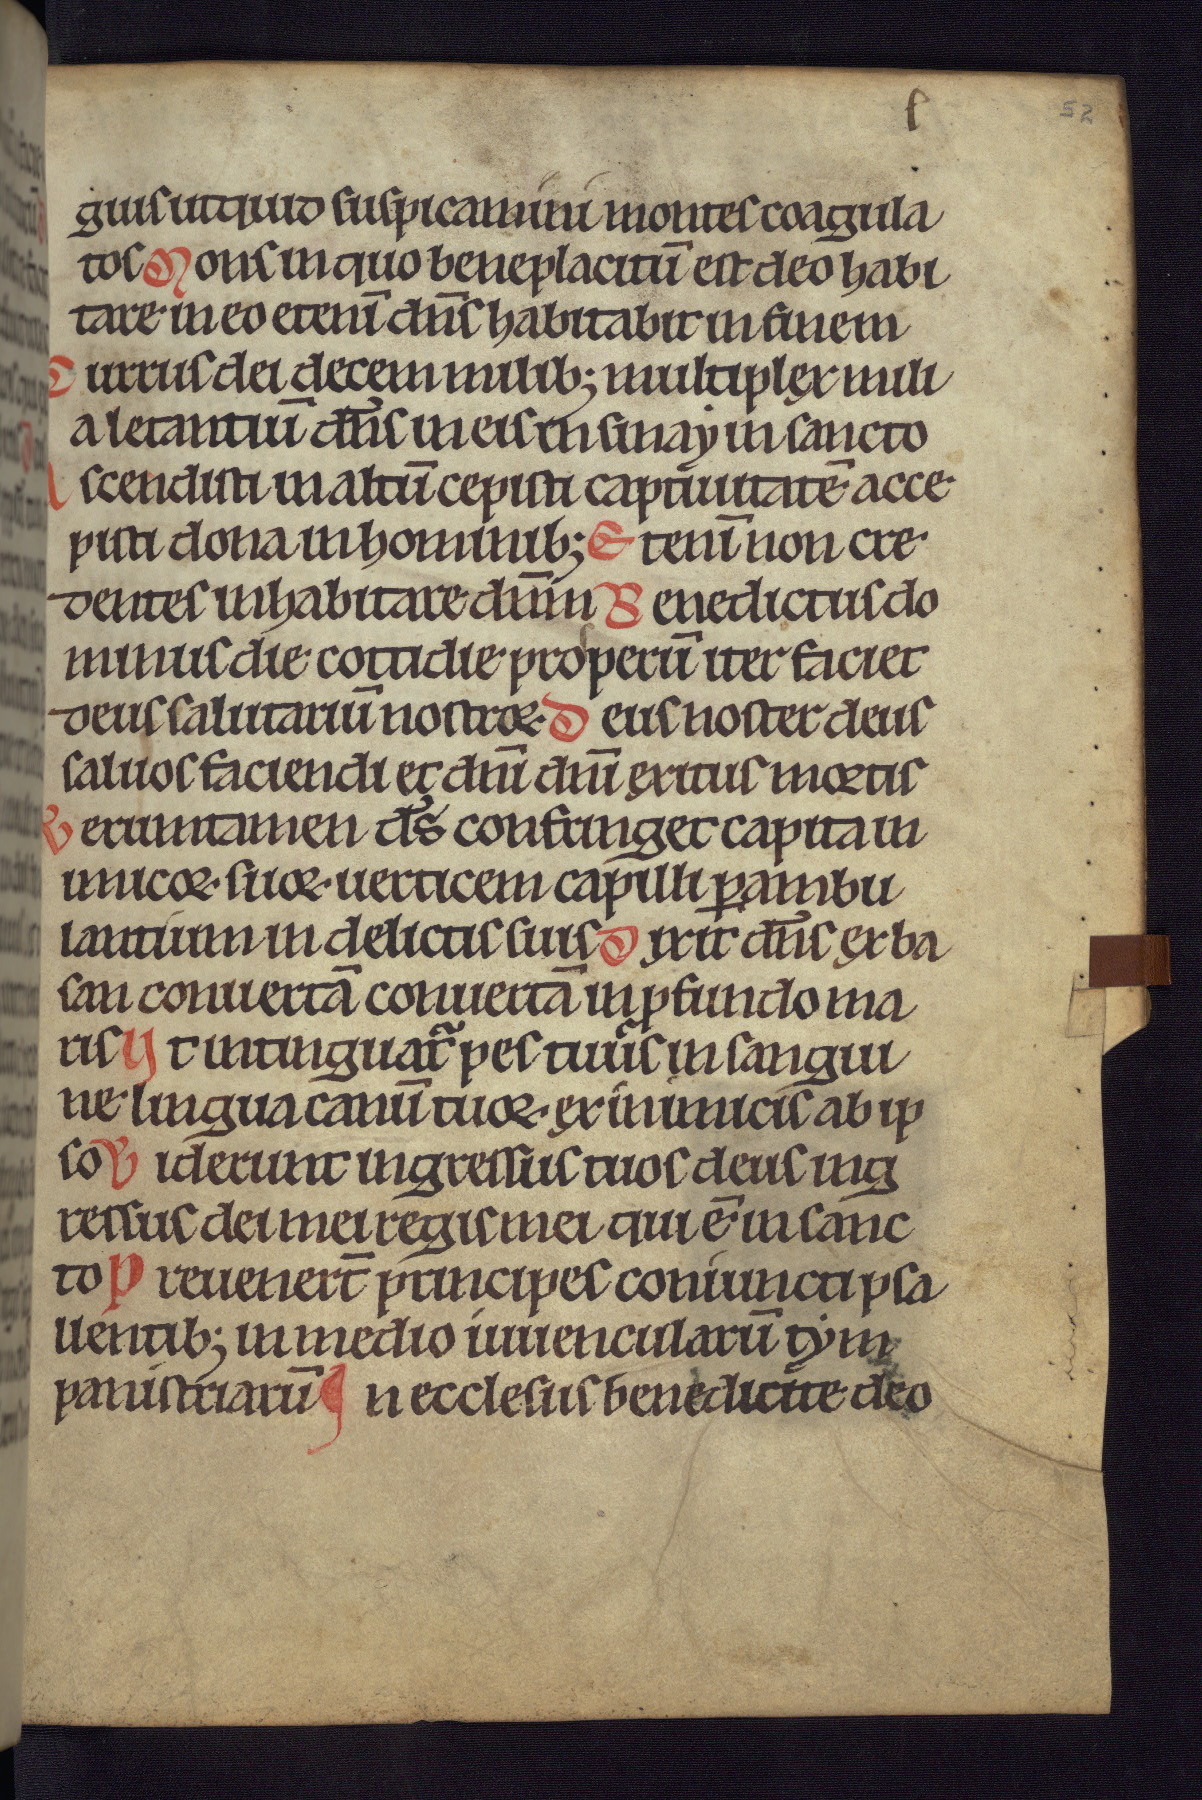 l
52
guis utquid suspicamini montes coagula
tos Mons in quo beneplacitū est deo habi
tare in eo etenī dn̄s habitabit in finem
Currus dei decem milib; multiplex mili
a letantiū dn̄s in eis in sinay in sancto
Ascendisti in altū cepisti captiuitatē acce
pisti dona in hominib; Etenī non cre
dentes inhabitare dn̄m Benedictus do
minus die cottidie prosperū iter faciet
deus salutariū nostroꝝ Deus noster deus
saluos faciendi et dn̄i dn̄i exitus mortis
Veruntamen ds̄ confringet capita in
imicoꝝ suoꝝ uerticem capilli ꝑambu
lantium in delictis suis Dixit dn̄s ex ba
san conuertā conuertā in ꝓfundo ma
ris Ut intinguat᷑ pes tuus in sangui
ne lingua canū tuoꝝ ex inimicis ab ip
so Viderunt ingressus tuos deus ing
ressus dei mei regis mei qui ē in sanc
to Preuenert̄ principes coniuncti psa
llentib; in medio iuuencularū tẏm
panistriarū In ecclesiis benedicite deo